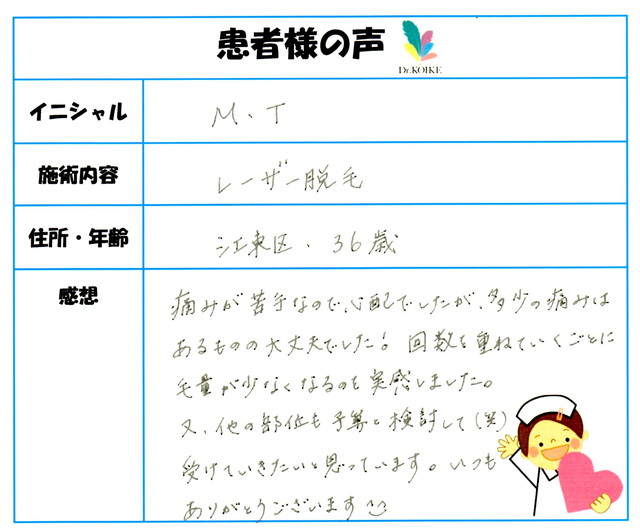 患者様の声
Dr.KOIKE
イニシャル M・T
施術内容 レーザー脱毛
住所・年齢 江東区・36歳
感想
痛みが苦手なので、心配でしたが、多少の痛みは
あるものの大丈夫でした! 回数を重ねていくごとに
毛量が少なくなるのも実感しました。
又、他の部位も予算と検討して(笑)
受けていきたいと思っています。いつも
ありがとうございます